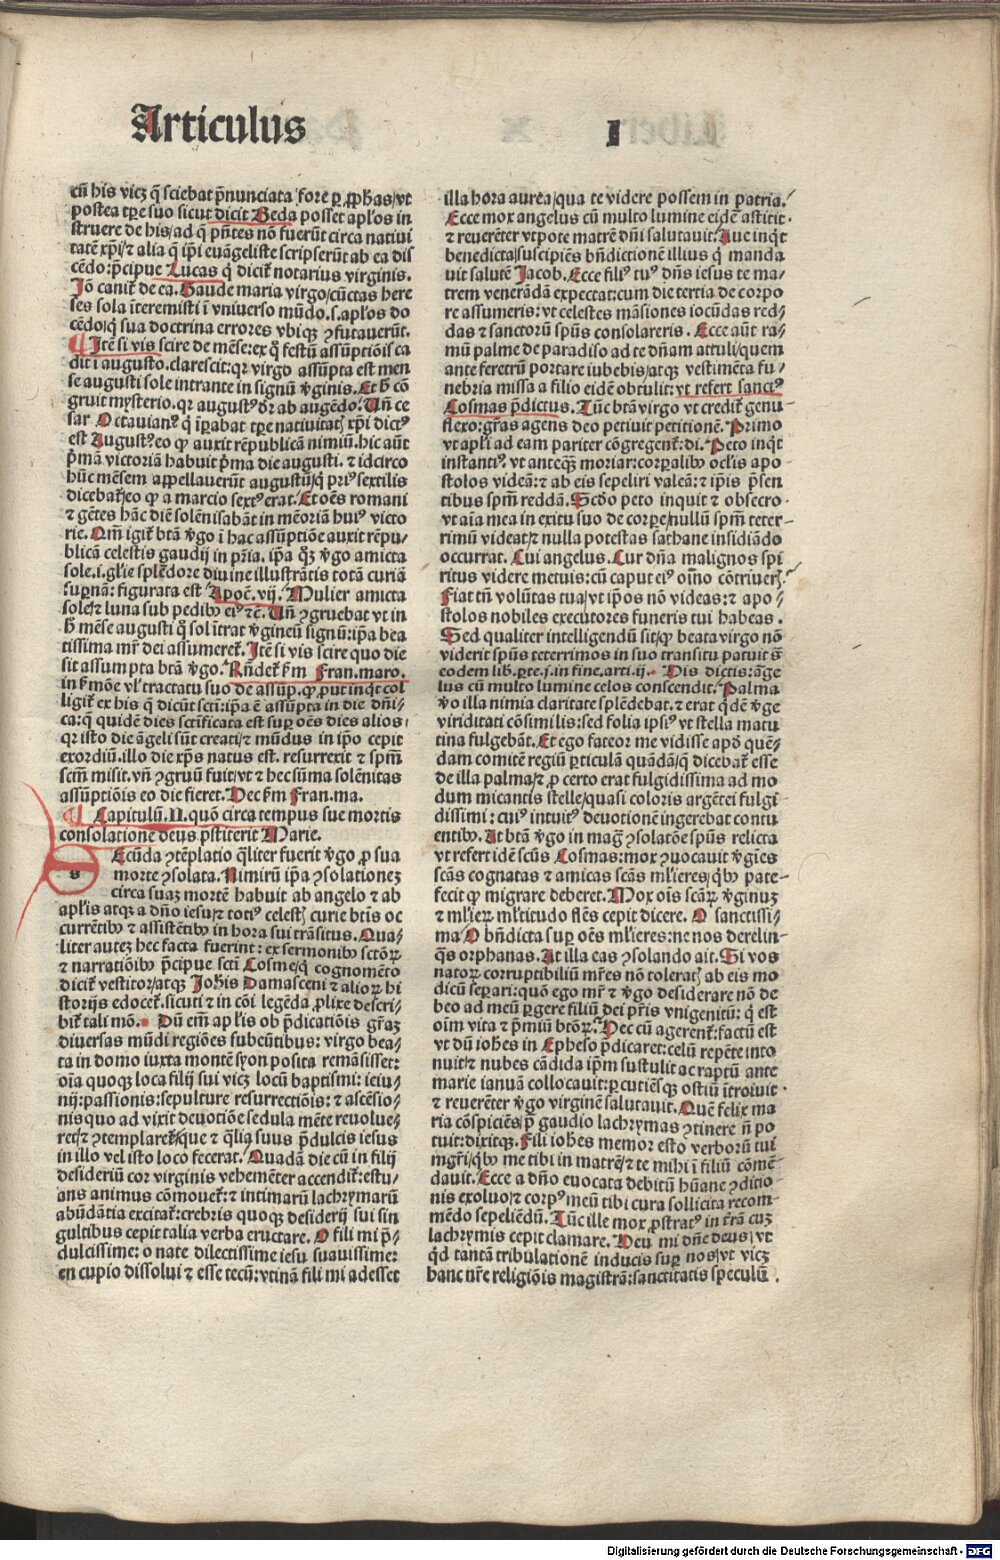 Articulus I
cū his vicꝫ q̄ sciebat p̄nunciata fore ꝑ ꝓphas/vt
postea tꝑe suo sicut dicit Beda posset apl'os in
struere de his/ad q̄ p̄ntes nō fuerūt circa nativi
tatē xp̄i/⁊ alia q̄ ip̄i euāgeliste scripserūt ab ea dis
cēdo: p̄cipue Lucas q̄ dicit̄ notarius virginis.
Jō canit̄ de ea. Gaude maria virgo/cūctas here
ses sola īteremisti ī vniuerso mūdo.s.apl'os do
cēdo/q̄ sua doctrina errores vbiqꝫ ꝯfutauerūt.
¶ Jtē si vis scire de mēse: ex q̄ festū assūptiōis ca
dit ī augusto.clarescit: qꝛ virgo assūpta est men
se augusti sole intrante in signū v̄ginis. Et h̄ cō
gruit mysterio. qꝛ augustꝰ dr̄ ab augēdo. Un̄ ce
sar Octauianꝰ q̄ īꝑabat tꝑe natiuitatꝭ xp̄i dictꝰ
est Augustꝰ eo ꝙ auxit rēpublicā nimiū. hic aūt
p̄mā victoriā habuit p̄ma die augusti. ⁊ idcirco
hūc mēsem appellauerūt augustū/q̄ priꝰ sextilis
dicebat̄/eo ꝙ a marcio sextꝰ erat. Et oēs romani
⁊ gētes hāc diē solēnisabāt in mēoriā huiꝰ victo
rie. Qm̄ igit̄ btā v̄go ī hac assūptiōe auxit rēpu/
blicā celestis gaudij in pr̄ia. ip̄a qꝫ v̄go amicta
sole.i.gl'ie splēdore diuine illustrātis totā curiā
supnā: figurata est Apoc̄.vij. Mulier amicta
sole/⁊ luna sub pedibꝰ eiꝰ ⁊c̄. Un̄ ꝯgruebat vt in
h̄ mēse augusti q̄ sol ītrat v̄gineū signū: ip̄a bea
tissima mr̄ dei assumeret̄. Jtē si vis scire quo die
sit assumpta btā v̄go. Rn̄det̄ ẜm Fran.maro.
in ẜmōe vl' tractatu suo de assūp.ꝙ prout inq̄t col
ligit̄ ex his q̄ dicūt scti: ip̄a ē assūpta in die dn̄i/
ca: q̄ quidē dies sctificata est suꝑ oēs dies alios:
qꝛ isto die āgeli sūt creati/⁊ mūdus in ip̄o cepit
exordiū. illo die xp̄s natus est. resurrexit ⁊ spm̄
scm̄ misit. vn̄ ꝯgruū fuit/vt ⁊ hec sūma solēnitas
assūptiōis eo die fieret. Hec ẜm Fran.ma.
¶ Capitulū.II. quō circa tempus sue mortis
consolatione deus p̄stiterit Marie.
sEcūda ꝯtēplatio q̄liter fuerit v̄go ꝓ sua
morte ꝯsolata. Nimirū ip̄a ꝯsolationeꝫ
circa suaꝫ mortē habuit ab angelo ⁊ ab
apl'is atqꝫ a dn̄o iesu/⁊ totiꝰ celestꝭ curie btīs oc
currētibꝰ ⁊ assistētibꝰ in hora sui trāsitus. Qua/
liter auteꝫ hec facta fuerint: ex sermonibꝰ sctōꝝ
⁊ narratiōibꝰ p̄cipue scti Cosme/q̄ cognomēto
dicit̄ vestitor/atqꝫ Joh̄is Damasceni ⁊ alioꝝ hi
storijs edocet̄. sicuti ⁊ in cōi legēda ꝓlixe descri/
bit̄ tali mō. Dū em̄ apl'is ob p̄dicatiōis gr̄aꝫ
diuersas mūdi regiōes subeūtibus: virgo bea/
ta in domo iuxta montē syon posita remāsisset:
oīa quoqꝫ loca filij sui vicꝫ locū baptismi: ieiu/
nij: passionis: sepulture resurrectiōis: ⁊ ascēsio/
nis quo ad vixit deuotiōe sedula mēte reuolue/
ret/⁊ ꝯtemplaret̄/que ⁊ q̄lia suus p̄dulcis iesus
in illo vel isto loco fecerat. Quadā die cū in filij
desideriū cor virginis vehemēter accendit̄: estu/
ans animus cōmouet̄: ⁊ intimarū lachrymarū
abūdātia excitat̄: crebris quoqꝫ desiderij sui sin
gultibus cepit talia verba eructare. O fili mi p̄/
dulcissime: o nate dilectissime iesu suauissime:
en cupio dissolui ⁊ esse tecū: vtinā fili mi adesset
illa hora aurea/qua te videre possem in patria.
Ecce mox angelus cū multo lumine eidē astitit.
⁊ reuerēter vtpote matrē dn̄i salutauit. Aue inq̄t
benedicta/suscipiēs bn̄dictionē illius q̄ manda
uit salutē Jacob. Ecce filiꝰ tuꝰ dn̄s iesus te ma/
trem venerādā expectat: cum die tertia de corpo
re assumeris: vt celestes māsiones iocūdas red/
das ⁊ sanctorū spūs consolareris. Ecce aūt ra/
mū palme de paradiso ad te dn̄am attuli/quem
ante feretrū portare iubebis/atqꝫ vestimēta fu/
nebria missa a filio eidē obtulit: vt refert sanctꝰ
Cosmas p̄dictus. Tūc btā virgo vt credit̄ genu
flexo: gr̄as agens deo petiuit petitionē. Primo
vt apl'i ad eam pariter cōgregent̄: di. Peto inq̄t
instantiꝰ vt anteqꝫ moriar: corꝑalibꝰ ocl'is apo/
stolos videā: ⁊ ab eis sepeliri valeā: ⁊ ip̄is p̄sen
tibus spm̄ reddā. Scdo peto inquit ⁊ obsecro.
vt aīa mea in exitu suo de corꝑe/nullū spm̄ teter/
rimū videat/⁊ nulla potestas sathane insidiādo
occurrat. Cui angelus. Cur dn̄a malignos spi
ritus videre metuis: cū caput eiꝰ oīno cōtriuerꝭ.
Fiat tn̄ volūtas tua/vt ip̄os nō videas: ⁊ apo/
stolos nobiles executores funeris tui habeas.
Sed qualiter intelligendū sit/ꝙ beata virgo nō
viderit spūs teterrimos in suo transitu patuit s̄
eodem lib.ꝑte.j.in fine.arti.ij. His dictis: āge
lus cū multo lumine celos conscendit. Palma
v̄o illa nimia claritate splēdebat. ⁊ erat q̄dē v̄ge
viriditati cōsimilis: sed folia ipsiꝰ vt stella matu
tina fulgebāt. Et ego fateor me vidisse apd̄ quē/
dam comitē regiū ꝑticulā quādā/q̄ dicebat̄ esse
de illa palma/⁊ ꝓ certo erat fulgidissima ad mo
dum micantis stelle/quasi coloris argētei fulgi
dissimi: cuiꝰ intuitꝰ deuotionē ingerebat contu
entibꝰ. At btā v̄go in maḡ ꝯsolatōe spūs relicta
vt refert idē scūs Cosmas: mox ꝯuocauit v̄gīes
scās cognatas ⁊ amicas scās ml'ieres/q̄bꝰ pate/
fecit ꝙ migrare deberet. Mox oīs scāꝝ v̄ginuꝫ
⁊ ml'ieꝝ ml'titudo flēs cepit dicere. O sanctissi/
ma/O bn̄dicta suꝑ oēs ml'ieres: ne nos derelin/
q̄s orphanas. At illa eas ꝯsolando ait. Si vos
natoꝝ corruptibiliū mr̄es nō toleratꝭ ab eis mo
dicū separi: quō ego mr̄ ⁊ v̄go desiderare nō de
beo ad meū ꝑgere filiū dei pr̄is vnigenitū: q̄ est
oīm vita ⁊ p̄miū btōꝝ. Hec cū agerent̄: factū est
vt dū ioh̄es in Epheso p̄dicaret: celū repēte into
nuit/⁊ nubes cādida ip̄m sustulit ac raptū ante
marie ianuā collocauit: ꝑcutiēsqꝫ ostiū ītroiuit.
⁊ reuerēter v̄go virginē salutauit. Quē felix ma
ria cōspiciēs/p̄ gaudio lachrymas ꝯtinere n̄ po
tuit: dixitqꝫ. Fili ioh̄es memor esto verborū tui
mgr̄i/q̄bꝰ me tibi in matrē/⁊ te mihi ī filiū cōmē/
dauit. Ecce a dn̄o euocata debitū hūane ꝯditio/
nis exoluo/⁊ corpꝰ meū tibi cura sollicita recom/
mēdo sepeliēdū. Tūc ille mox ꝓstratꝰ in t̄rā cuꝫ
lachrymis cepit clamare. Heu mi dn̄e deus/vt
q̄d tantā tribulationē inducis suꝑ nos/vt vicꝫ
hanc nr̄e religiōis magistrā: sanctitatis speculū.